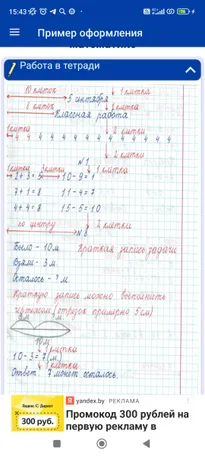 15:43
Пример оформления
Работа в тетради
10 клеток 1 клетка
5 октября
8 клеток 1 клетка
Классная работа
1 клетка 2 клетки
4 4 4 4 4 4 4 4 4 4 4 4
2 клетки
№1
1 клетка 3 клетки 1 клетка
2+3=5 10-9=1
7+1=8 11-4=7
4+4=8 15-5=10
по центру 2 клетки
№8
Было - 10м Краткая запись задачи
Взяли - 3м
Осталось - ? м
Краткую запись можно выполнить
чертежом (отрезок примерно 5см)
10м
1 клетка
10-3=7(м)
1 клетка
Ответ: 7 монет осталось.
yandex.by РЕКЛАМА
Промокод 300 рублей на
первую рекламу в
300 руб.